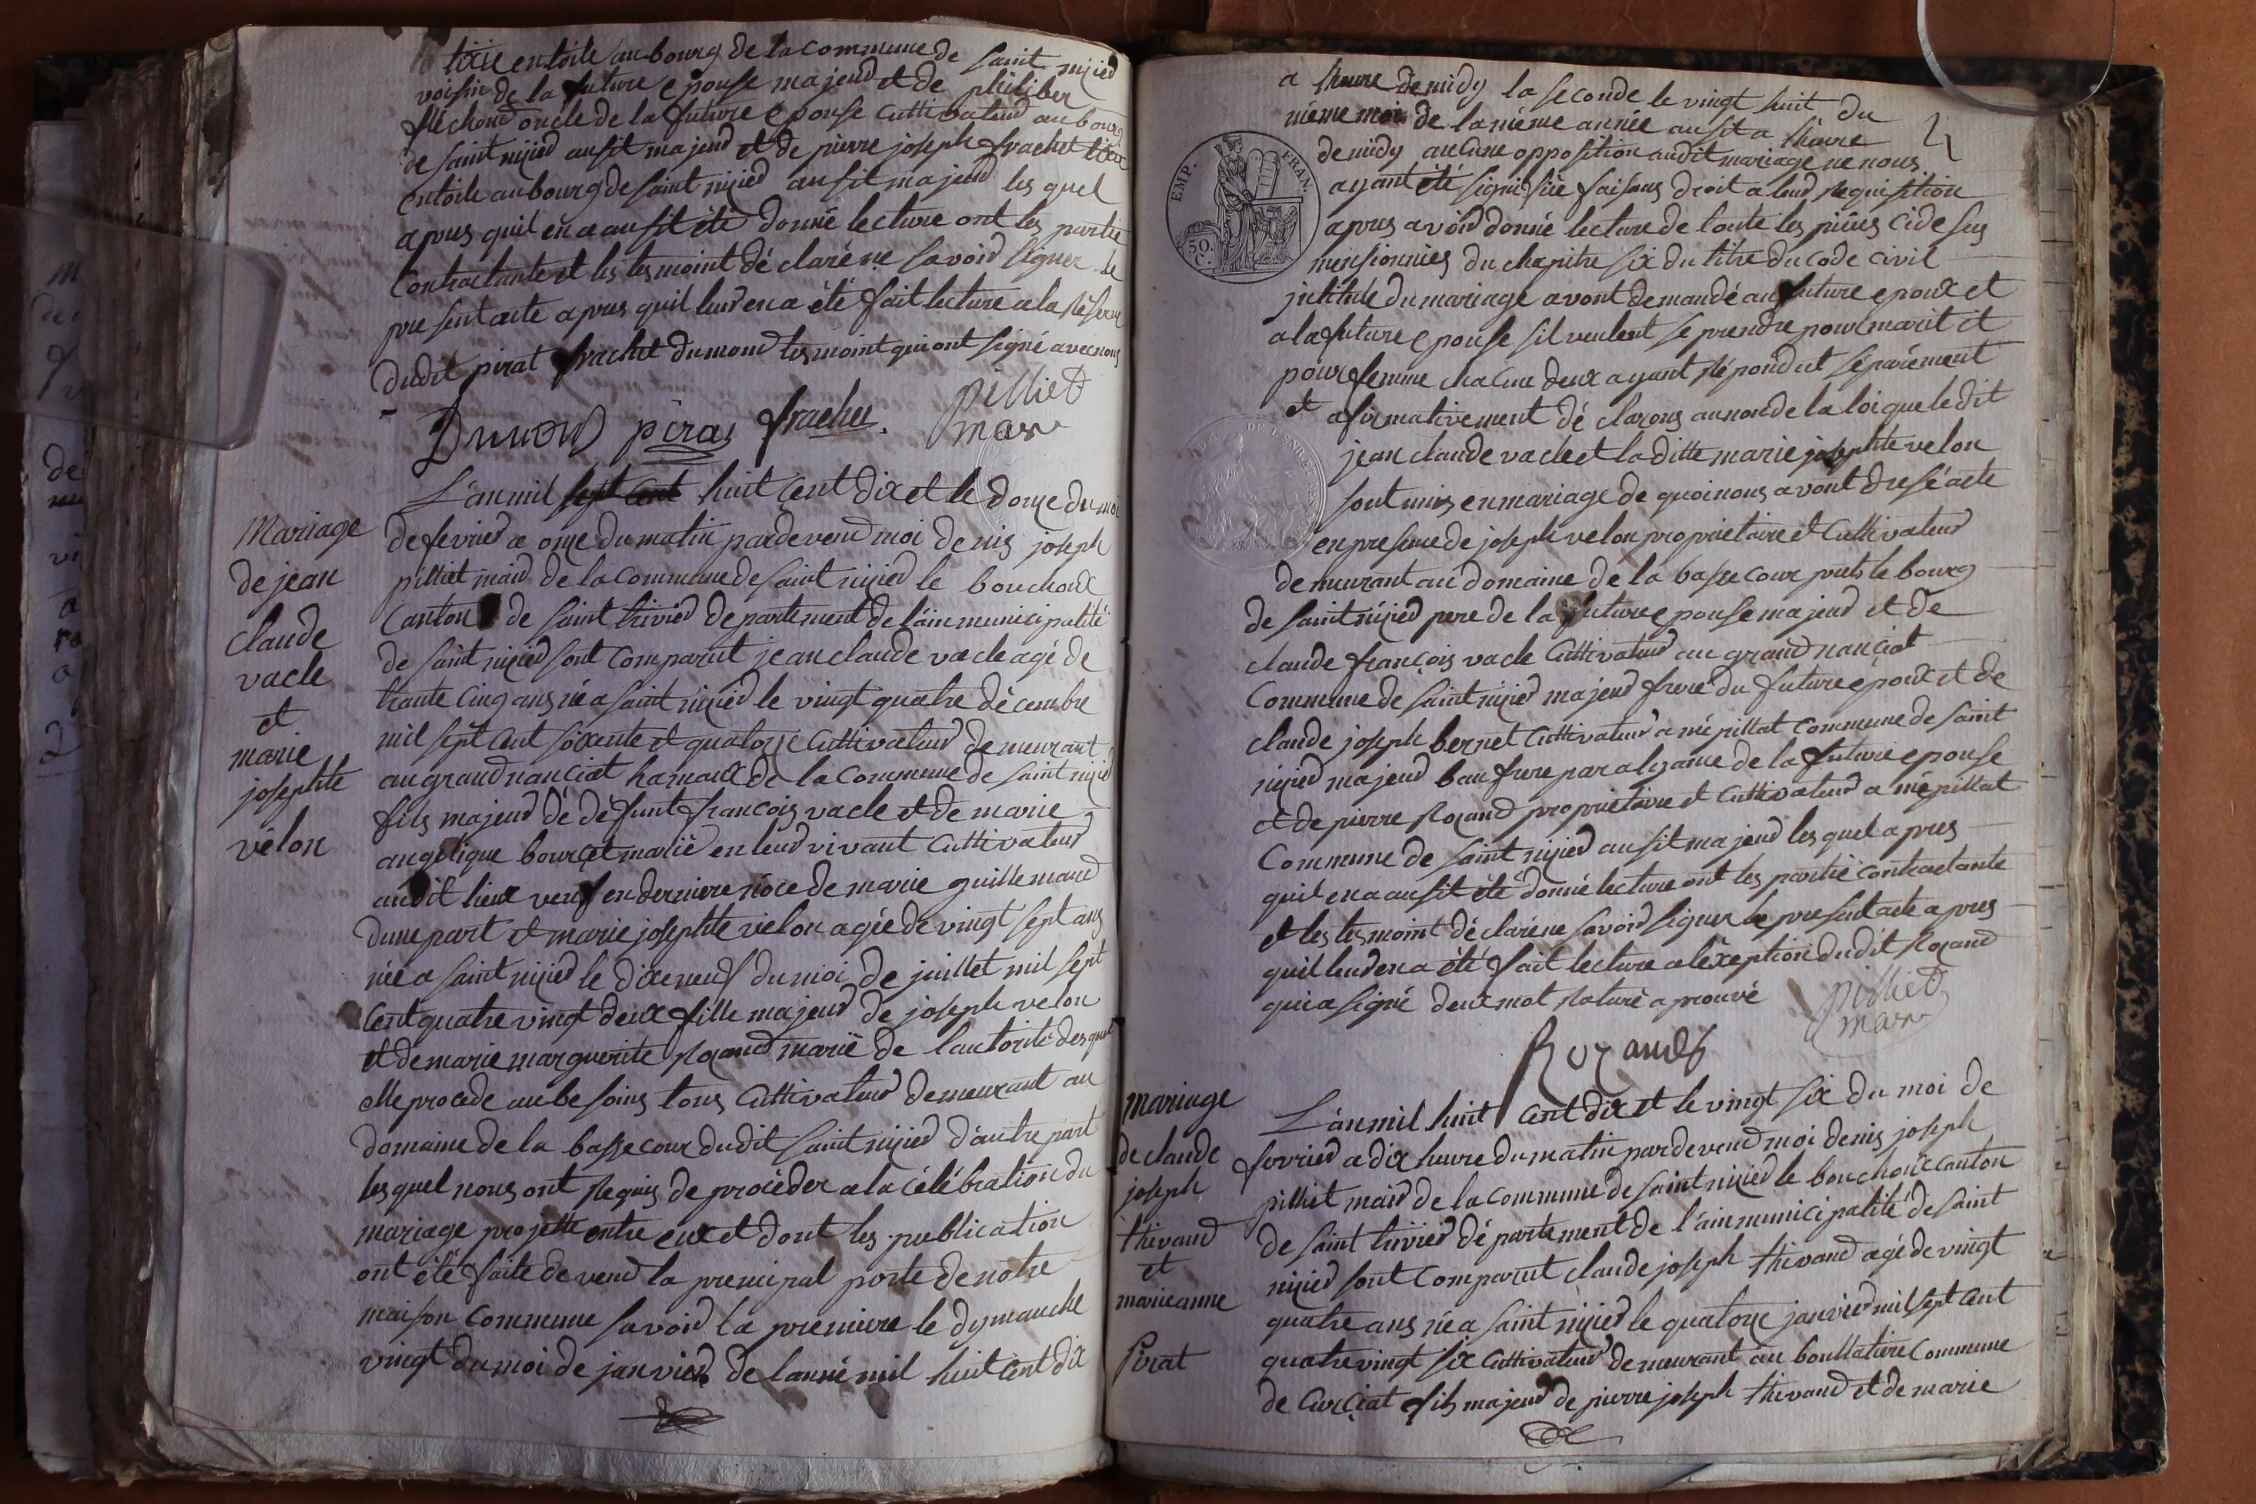 tixie en toile au bourg de la commune de saint nizied
voisin de la future epouse majeud et de philiber
flechond oncle de la future epouse cuttivateud au bourg
de saint nizied ausit majeud et de pierre joseph frachet tixie
en toile au bourg de saint nizied ausit majeud les quel
apres quil en a ausit été donné lecture ont les partie
contractante et les tesmoint déclaré ne savoid signer le
presentacte apres quil leud en a été fait lecture a la réserve
dudit pirat frachet dumond tesmoint qui ont signé avec nous
Dumond piras frachet pilliet
mare
L'an mil sept cent huit cent dix et le douze du moi
de fevried a onze du matin pardevend moi denis joseph
pilliet maid de la commune de saint nizied le bouchoux
canton de saint trivied departement de l'ain municipalité
de saint nizied sont comparut jean claude vacle agé de
trante cinq ans né a saint nizied le vingt quatre décembre
mil sept cent soixente et quatorze cuttivateud demeurant
au grand nanciat hamaux de la commune de saint nizied
fils majeud dé défunt françois vacle et de marie
angelique bourcet marié en leud vivant cuttivateud
audit lieux veuf en derniere noce de marie guillemaud
dune part et marie josephte velon agée de vingt sept ans
née a saint nizied le dix neuf du moi de juillet mil sept
cent quatre vingt deux fille majeud de joseph velon
et de marie marguerite Rozand marié de l'autorité desquel
elle procede au besoins tous cuttivateud demeurant au
domaine de la basse cour dudit saint nizied d'autre part
les quel nous ont Requis de procéder a la célébration du
mariage projetté entre eux et dont les publication
ont été faite devend la principal porte de notre
maison commune savoid la premiere le dymanche
vingt du moi de janvied de lanné mil huit cent dix
Mariage
de jean
claude
vacle
et
marie
josephte
vélon
a heure de midy la seconde le vingt huit du
même mois de la même année ausit a lheure
de midy aucune opposition audit mariage ne nous
ayant été signifiée faisons droit a leud Requisition
apres avoid donné lecture de toute les pièces cide sus
mensionnies du chapitre six du titre du code civil
jntitule du mariage avont demandé au future epoux et
a la future epouse sil veulent se prendre pour marit et
pour femme chacune deux ayant Répondut séparément
et afirmativement déclarons au nom de la loi que ledit
jean claude vacle et la ditte marie josephte velon
sont unis en mariage de quoi nous avont dresé acte
en presence de joseph velon proprietaire et Cuttivateud
demeurant au domaine de la basse cour prets le bourg
de saint nizied pere de la future epouse majeud et de
claude françois vacle Cuttivateud au grand nançiat
Commune de saint nizied majeud frere du future epoux et de
claude joseph bernet Cuttivateud a mépillat commune de saint
nizied majeud bau frere par alyance de la future epouse
et de pierre Rozand proprietaire et cuttivateud a mépillat
Commune de saint nizied ausit majeud les quel apres
quil en a ausit été donné lecture ont les partie contractante
et les tesmoint déclaré ne savoid signer le presentacte apres
quil leud en a été fait lecture a léxeption dudit Rozand
qui a signé deux mot Raturé aprouvé
pilliet
mare
Rozand
EMP. FRAN.
50. C.
mariage
de claude
joseph
thivand
et
marieanne
Pirat
L'an mil huit cent dix et le vingt six du moi de
fevried a dix heure du matin pardevend moi denis joseph
pilliet maid de la commune de saint nizied le bouchoux canton
de saint trivied département de l'ain municipalité de saint
nizied sont comparut claude joseph thivand agé de vingt
quatre ans né a saint nizied le quatorze janvied mil sept cent
quatre vingt six cuttivateud demeurant au bouttatiere commune
de Curçiat fils majeud de pierre joseph thivand et de marie